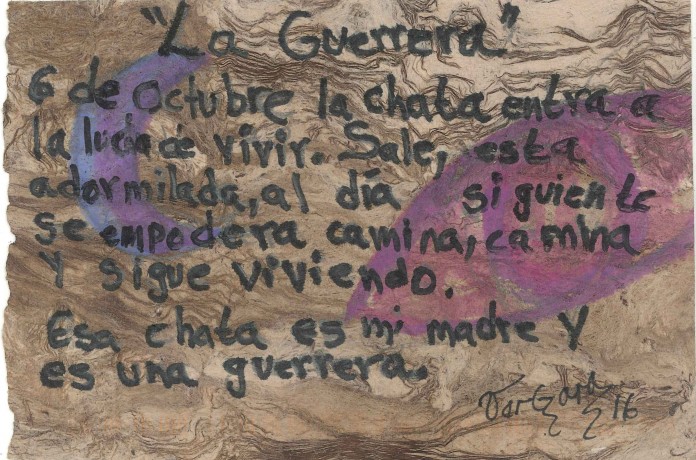 "La Guerrera"
6 de Octubre la chata entra a
la lucha de vivir. Sale, esta
adormilada, al día siguiente
se empodera camina, camina
y sigue viviendo.
Esa chata es mi madre y
es una guerrera.
16